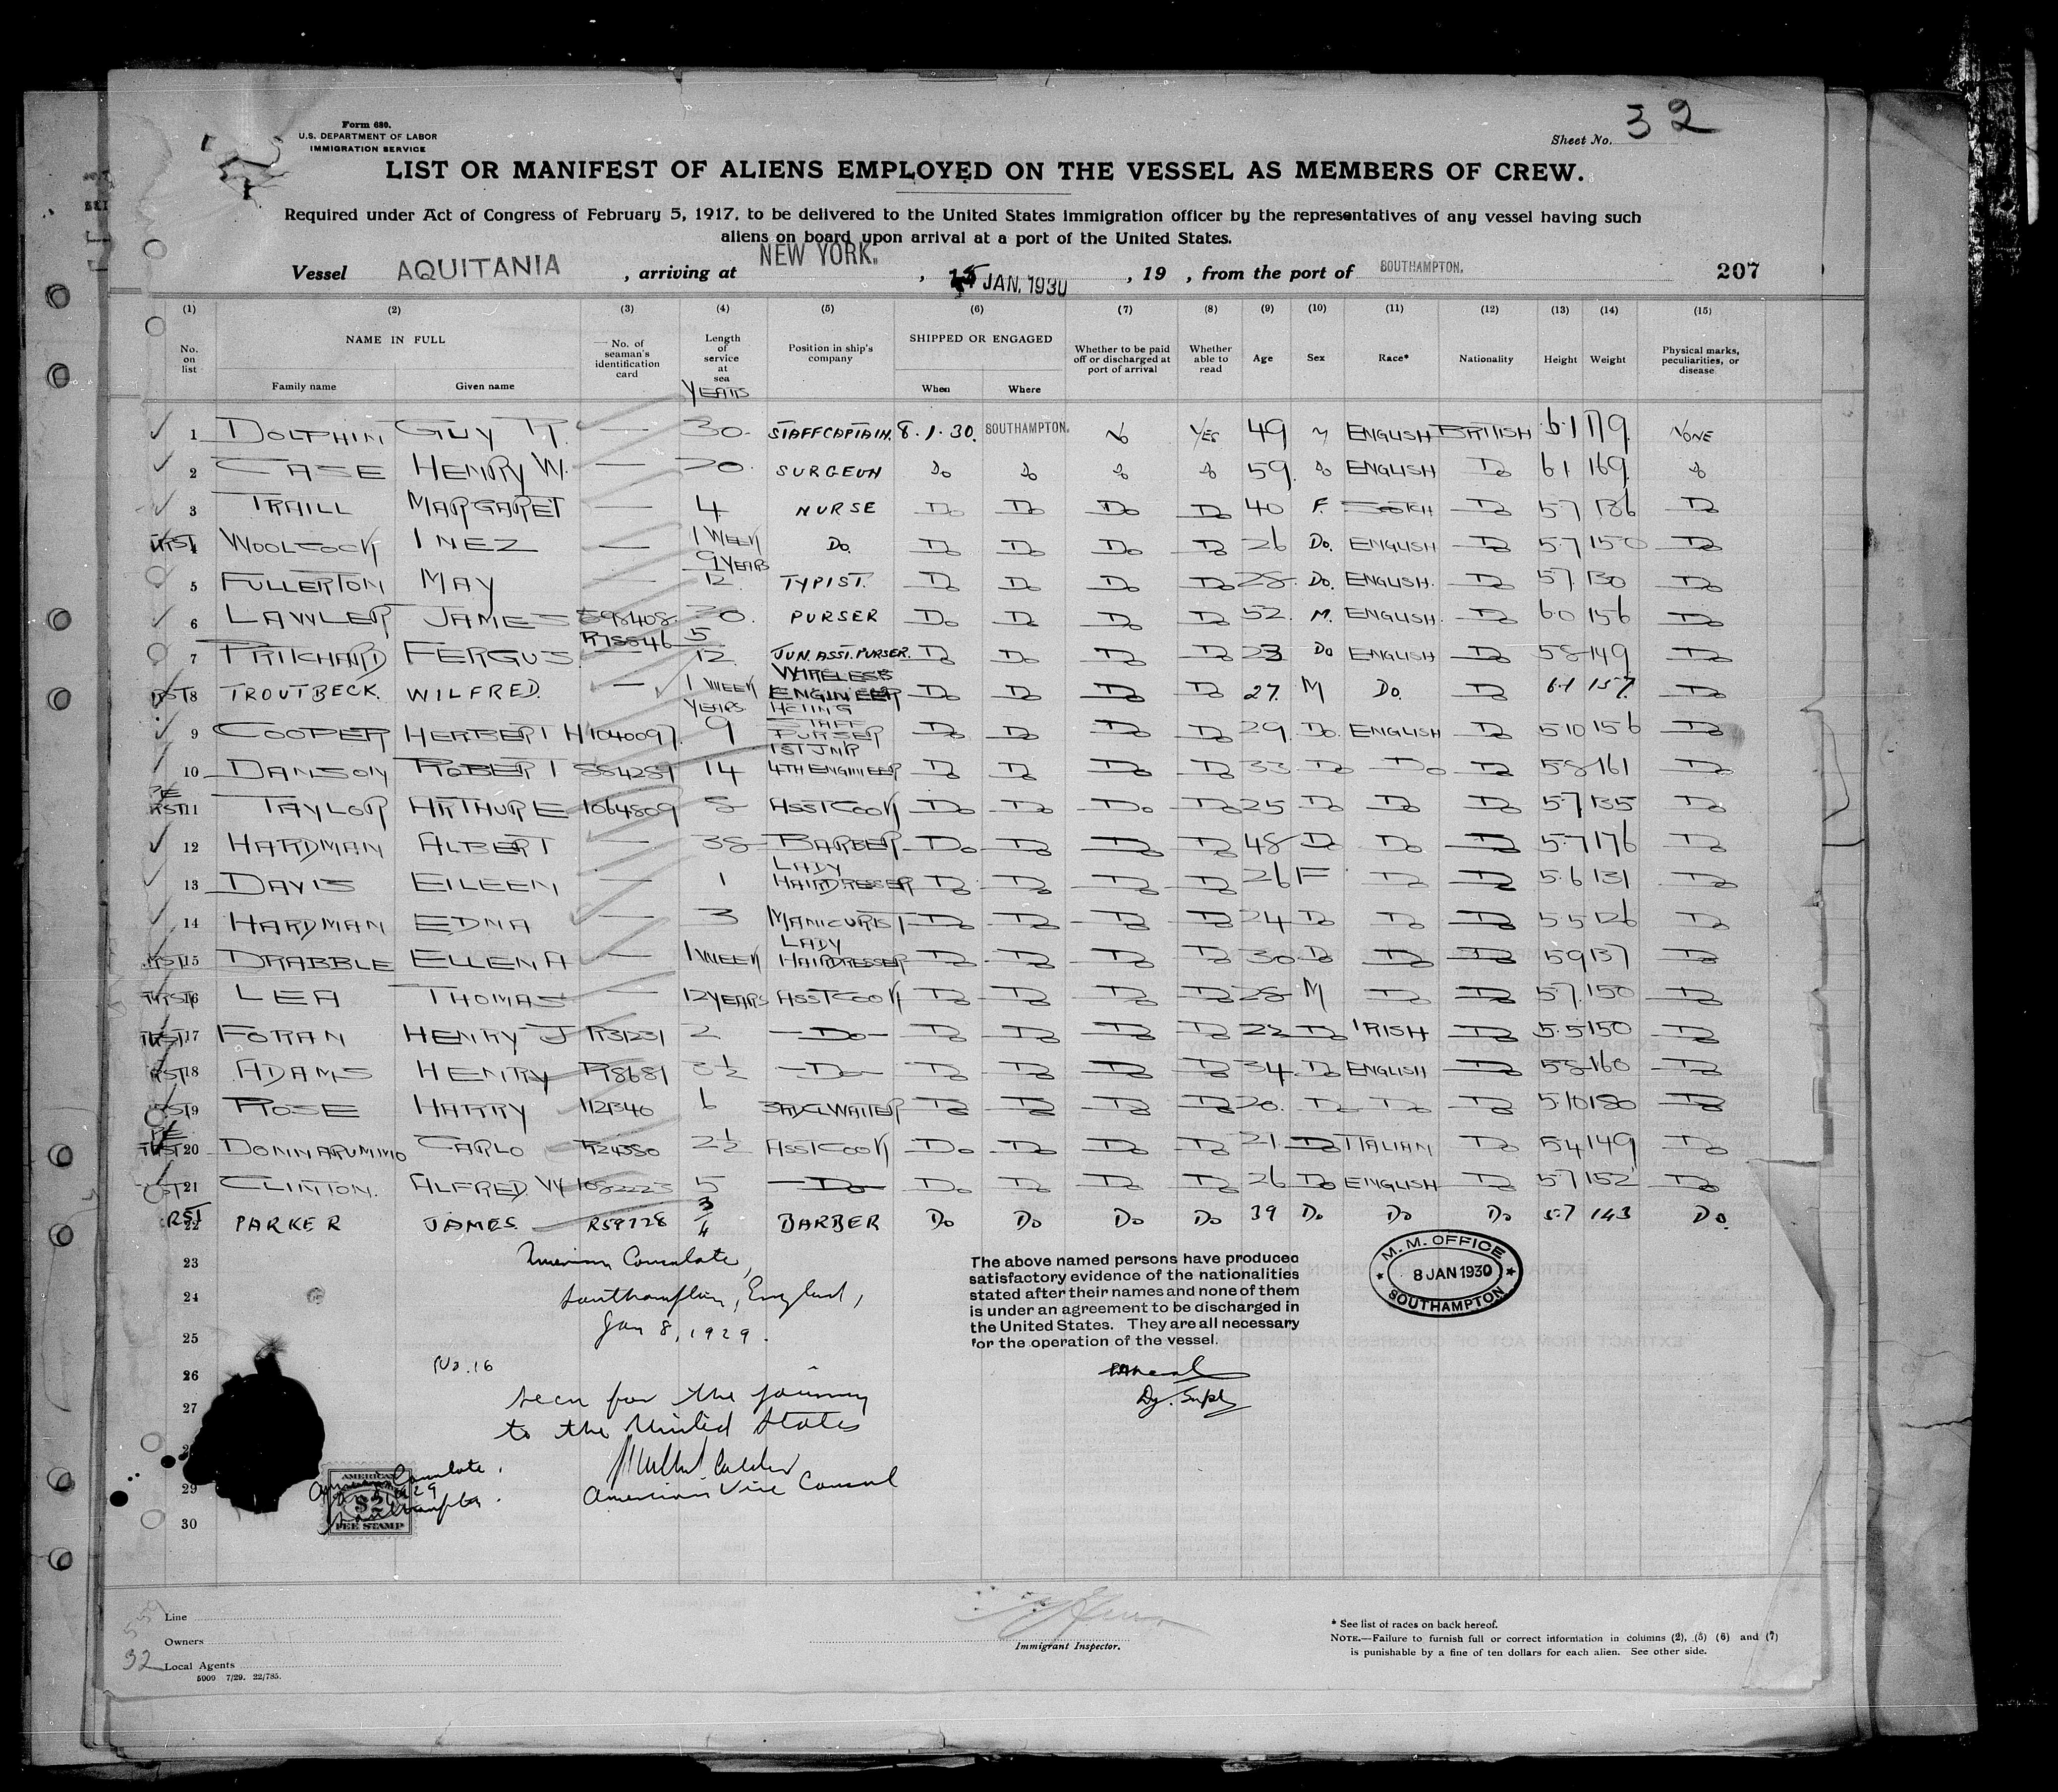 Form 680.
U.S. DEPARTMENT OF LABOR
IMMIGRATION SERVICE
Sheet No. 32
LIST OR MANIFEST OF ALIENS EMPLOYED ON THE VESSEL AS MEMBERS OF CREW.
Required under Act of Congress of February 5, 1917, to be delivered to the United States immigration officer by the representatives of any vessel having such
aliens on board upon arrival at a port of the United States.
Vessel AQUITANIA , arriving at NEW YORK. , JAN. 1930 , 19 , from the port of SOUTHAMPTON. 207
(1) (2) (3) (4) (5) (6) (7) (8) (9) (10) (11) (12) (13) (14) (15)
No. on list NAME IN FULL Family name Given name No. of seaman's identification card Length of service at sea YEARS Position in ship's company SHIPPED OR ENGAGED When Where Whether to be paid off or discharged at port of arrival Whether able to read Age Sex Race* Nationality Height Weight Physical marks, peculiarities, or disease
1 DOLPHIN GUY R. — 30 STAFF CAPTAIN. 8.1.30. SOUTHAMPTON. No YES 49 M ENGLISH BRITISH 6.1 179 NONE
2 CASE HENRY W. — 20. SURGEON Do Do Do Do 59 Do ENGLISH Do 6 1 169 Do
3 TRAILL MARGARET — 4 NURSE Do Do Do Do 40 F. SCOTCH Do 5 7 136 Do
4 WOOLCOCK INEZ — 1 WEEK Do. Do Do Do Do 26 Do. ENGLISH Do 5 7 150 Do
5 FULLERTON MAY — 9 YEARS 12 TYPIST. Do Do Do Do 28 Do. ENGLISH. Do 5 7 130 Do
6 LAWLER JAMES 598408 20. PURSER Do Do Do Do 52. M. ENGLISH. Do 6 0 156 Do
7 PRITCHARD FERGUS R75546 5 12 JUN. ASST. PURSER. Do Do Do Do 23 Do ENGLISH Do 5 8 149 Do
RST 8 TROUTBECK. WILFRED. — 1 WEEK WIRELESS ENGINEER Do Do Do Do 27. M Do. Do 6.1 157. Do
9 COOPER HERBERT H 1040097. YEARS 9 ACTING STAFF PURSER Do Do Do Do 29. Do. ENGLISH Do 5 10 156 Do
10 DANSON ROBERT 884289 14 1ST JNR 4TH ENGINEER Do Do Do Do 33 Do Do Do 5 8 161 Do
RST 11 TAYLOR ARTHUR E 1064809 8 ASST COOK Do Do Do Do 25 Do Do Do 5.7 135 Do
12 HARDMAN ALBERT — 38 BARBER Do Do Do Do 48 Do Do Do 5.7 176 Do
13 DAVIS EILEEN — 1 LADY HAIRDRESSER Do Do Do Do 26 F Do Do 5.6 131 Do
14 HARDMAN EDNA — 3 MANICURIST Do Do Do Do 24 Do Do Do 5 5 126 Do
RST 15 DRABBLE ELLEN A — 1 WEEK LADY HAIRDRESSER Do Do Do Do 30 Do Do Do 5 9 137 Do
16 LEA THOMAS — 12 YEARS ASST COOK Do Do Do Do 28 M Do Do 5 7. 150 Do
17 FORAN HENRY J R31231 2 —Do— Do Do Do Do 22 Do IRISH Do 5.5 150 Do
RST 18 ADAMS HENRY R18681 3½ —Do— Do Do Do Do 34 Do ENGLISH Do 5 8 160 Do
RST 19 ROSE HARRY 1121340 6 3RD CL WAITER Do Do Do Do 20. Do Do Do 5.10 180 Do
20 DONNARUMMO CARLO R24550 2½ ASST COOK Do Do Do Do 21 Do ITALIAN Do 5 4 149 Do
21 CLINTON. ALFRED W 5 —Do— Do Do Do Do 26 Do ENGLISH Do 5 7 152 Do
RST 22 PARKER JAMES R59728 3/4 BARBER Do Do Do Do 39 Do Do Do 5.7 143 Do.
23
24
25
26
27
29
30
American Consulate,
Southampton, England,
Jan 8, 1929.
No. 16
Seen for the journey
to the United States
American Vice Consul
The above named persons have produced
satisfactory evidence of the nationalities
stated after their names and none of them
is under an agreement to be discharged in
the United States. They are all necessary
for the operation of the vessel.
Dy. Supt
M. M. OFFICE
8 JAN 1930
SOUTHAMPTON
AMERICAN
$2
FEE STAMP
American Consulate.
Southampton.
Line
Owners
32 Local Agents
5000 7/29. 22/785.
Immigrant Inspector.
* See list of races on back hereof.
NOTE.—Failure to furnish full or correct information in columns (2), (5) (6) and (7)
is punishable by a fine of ten dollars for each alien. See other side.